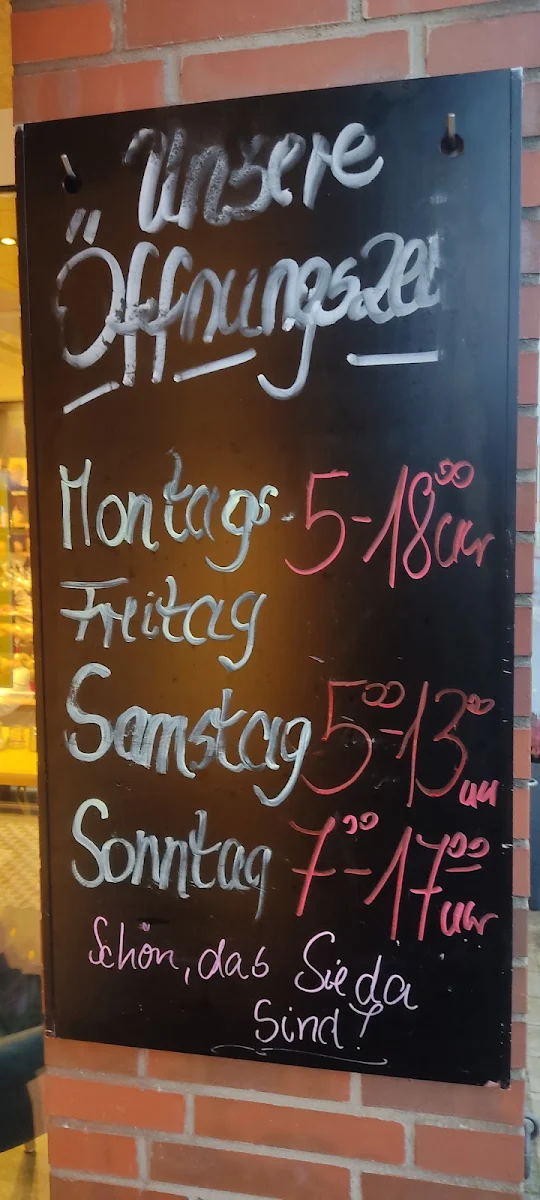 Unsere
Öffnungszei
Montags - 5-18⁰⁰ uhr
Freitag
Samstag 5⁰⁰-13⁰⁰ uhr
Sonntag 7⁰⁰-17⁰⁰ uhr
Schön, das Sie da
Sind!